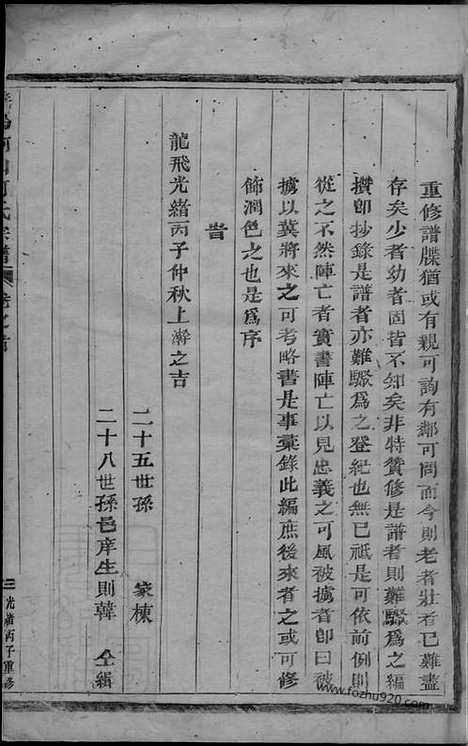 重修譜牒猶或有親可詢有鄰可問而今則老者壯者已難盡
存矣少者幼者固皆不知矣非特贊修是譜者則難驟為之編
攢即抄錄是譜者亦難驟為之登紀也無已祇是可依前例則
從之不然陣亡者實書陣亡以見忠義之可風被擄者即曰被
擄以冀將來之可考略書是事彚錄此編庶後來者之或可修
飾潤色之也是為序
旹
龍飛光緒丙子仲秋上澣之吉
二十五世孫 家棟
二十八世孫邑庠生則韓 仝緝
氏宗譜 卷之首
三 光緒丙子重修
www.fozhu920.com